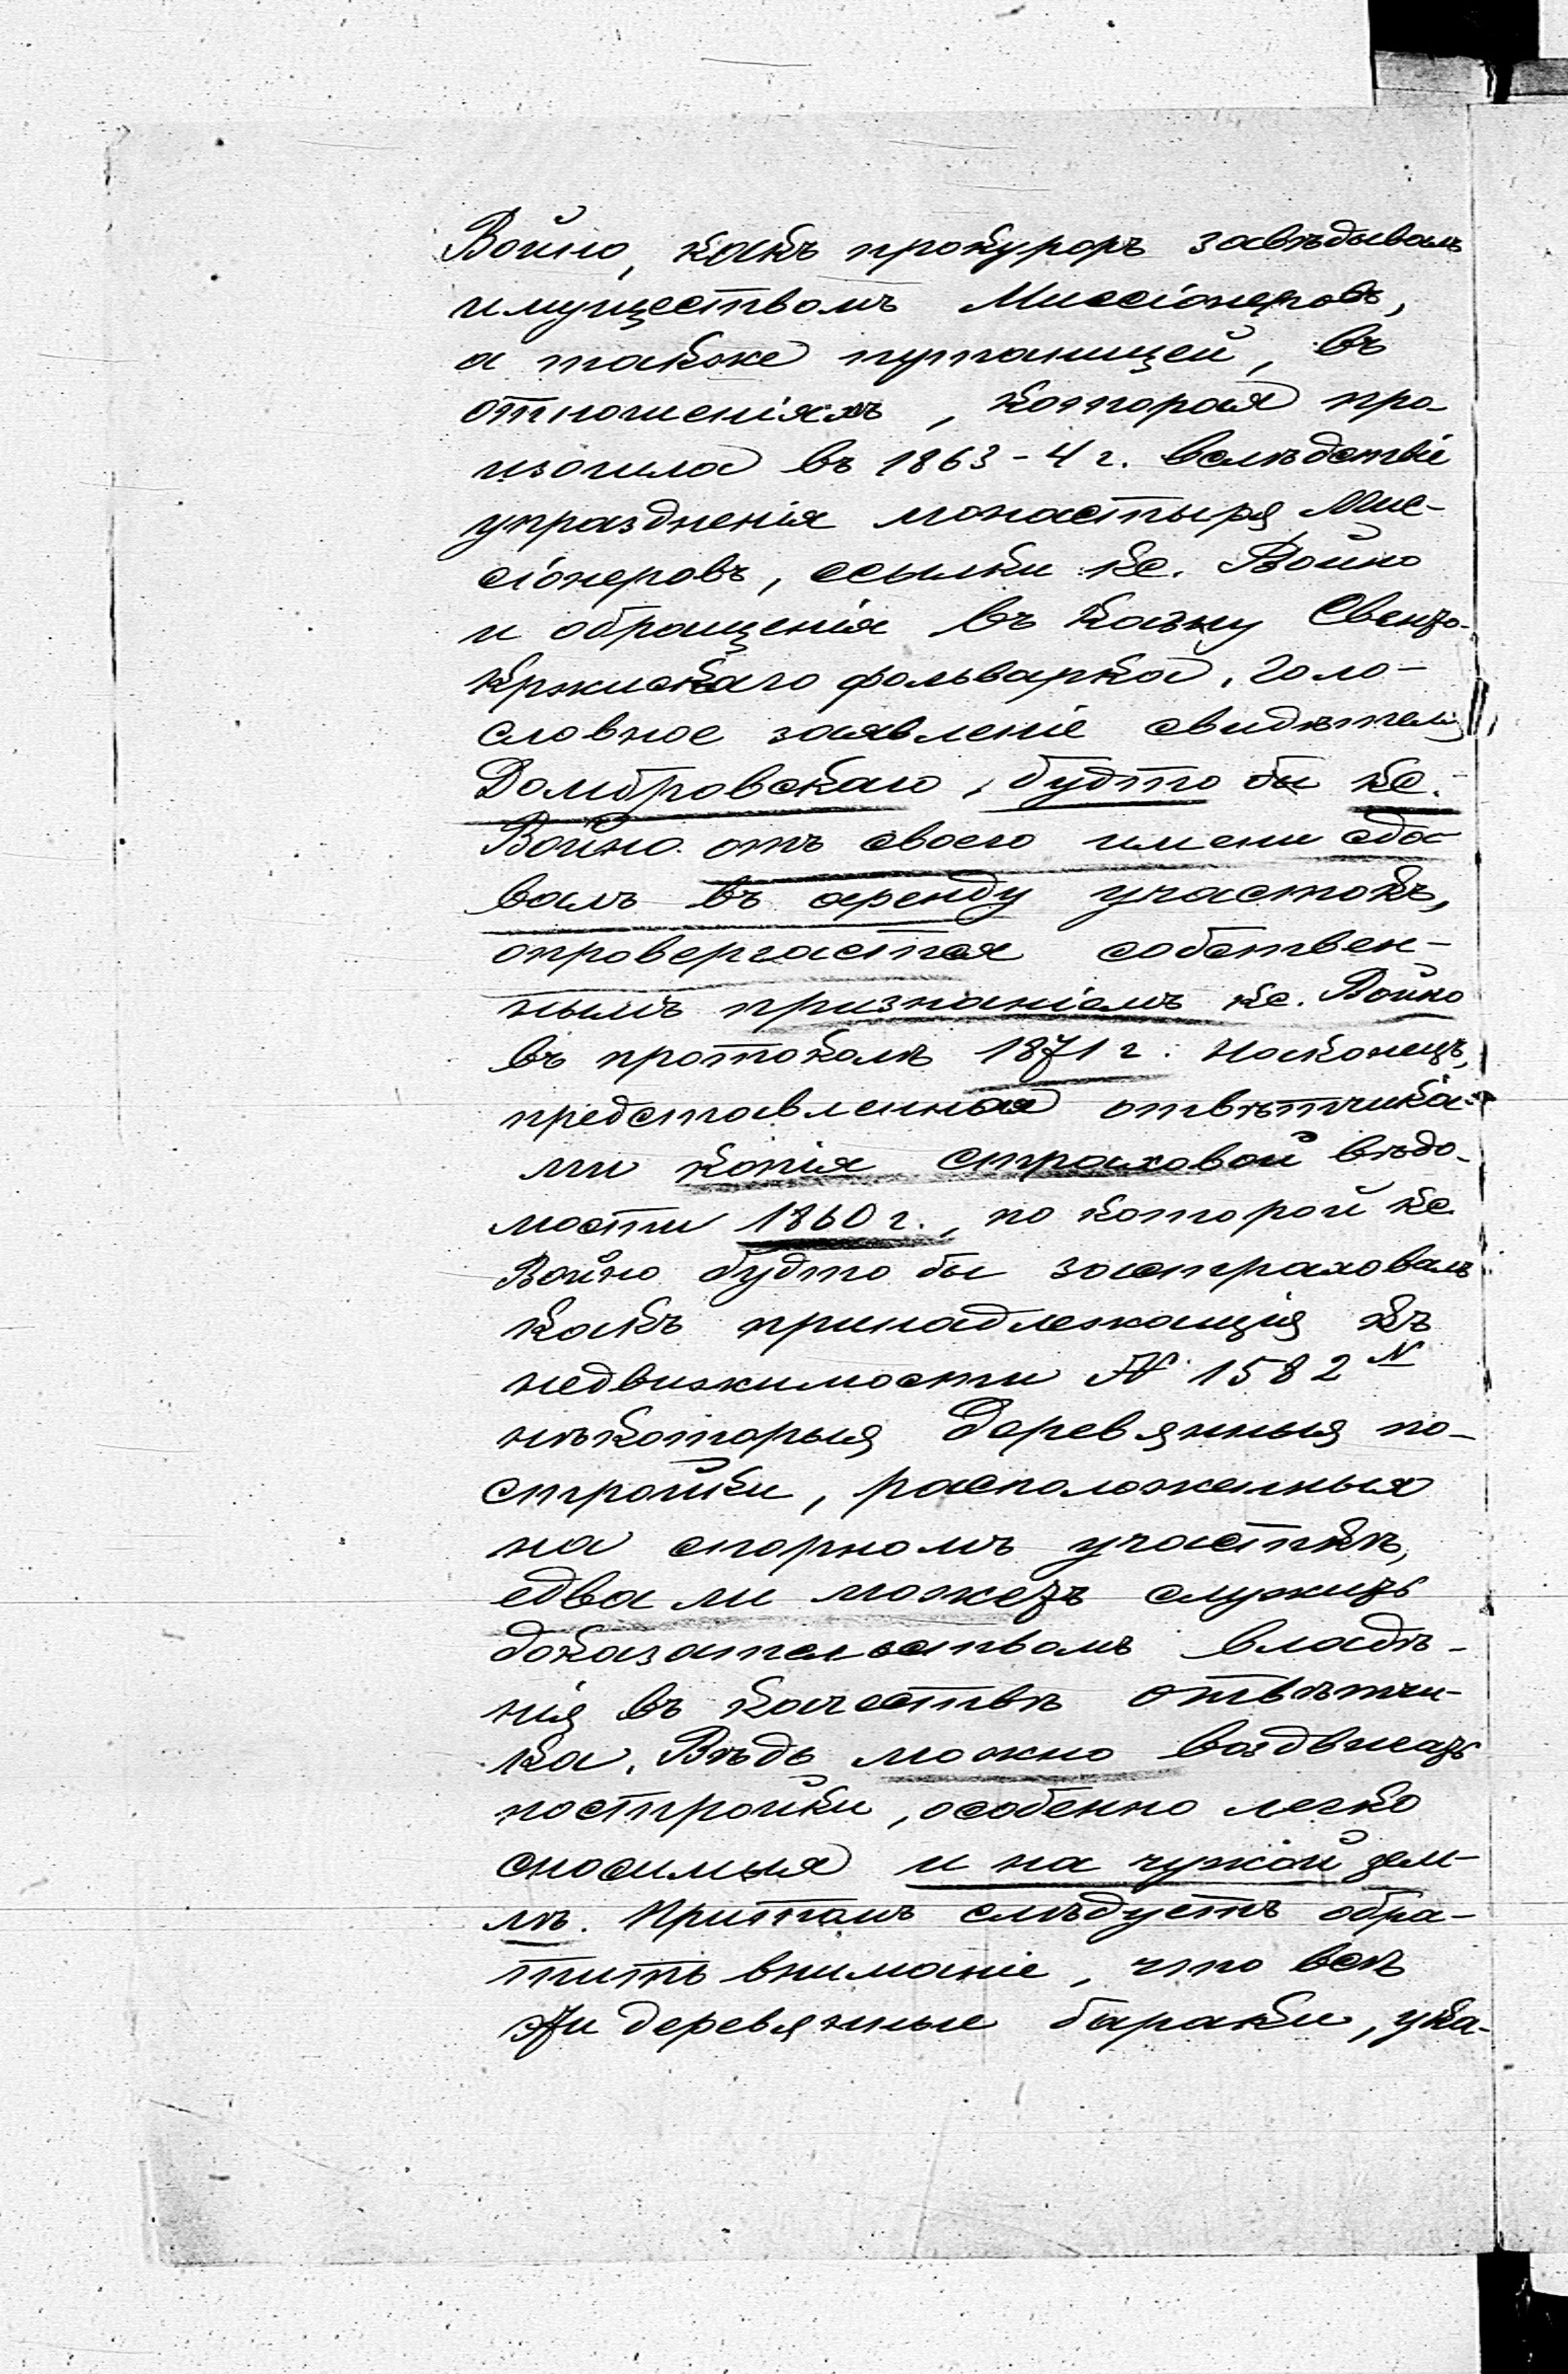 Война, какъ прокуроръ завѣдывалъ
имуществомъ Миссіонеровъ,
а также путаницей, въ
отношеніяхъ, которая про-
изошла въ 1863-4 г. вслѣдствіе
упраздненія монастыря Мис-
сіонеровъ, ссылки кс. Войно
и обращенія въ казну Свенто-
кржискаго фольварка. Голо-
словное заявленіе свидѣтеля
Домбровскаго, будто бы кс.
Войно отъ своего имени сда-
валъ въ аренду участокъ,
опровергается собствен-
нымъ признаніемъ кс. Войно
въ протоколѣ 1871 г. Наконецъ,
представленная отвѣтчика-
ми копія страховой вѣдо-
мости 1860 г., по которой кс.
Войно будто бы застраховалъ
какъ принадлежащія къ
недвижимости № 1582 N
нѣкоторыя деревянныя по-
стройки, расположенныя
на спорномъ участкѣ,
едва ли можетъ служить
доказательствомъ владѣ-
нія въ качествѣ отвѣтчи-
ка. Вѣдь можно воздвигать
постройки, особенно легко
сносимыя и на чужой зем-
лѣ. Притомъ слѣдуетъ обра-
тить вниманіе, что всѣ
эти деревянные бараки, ука-